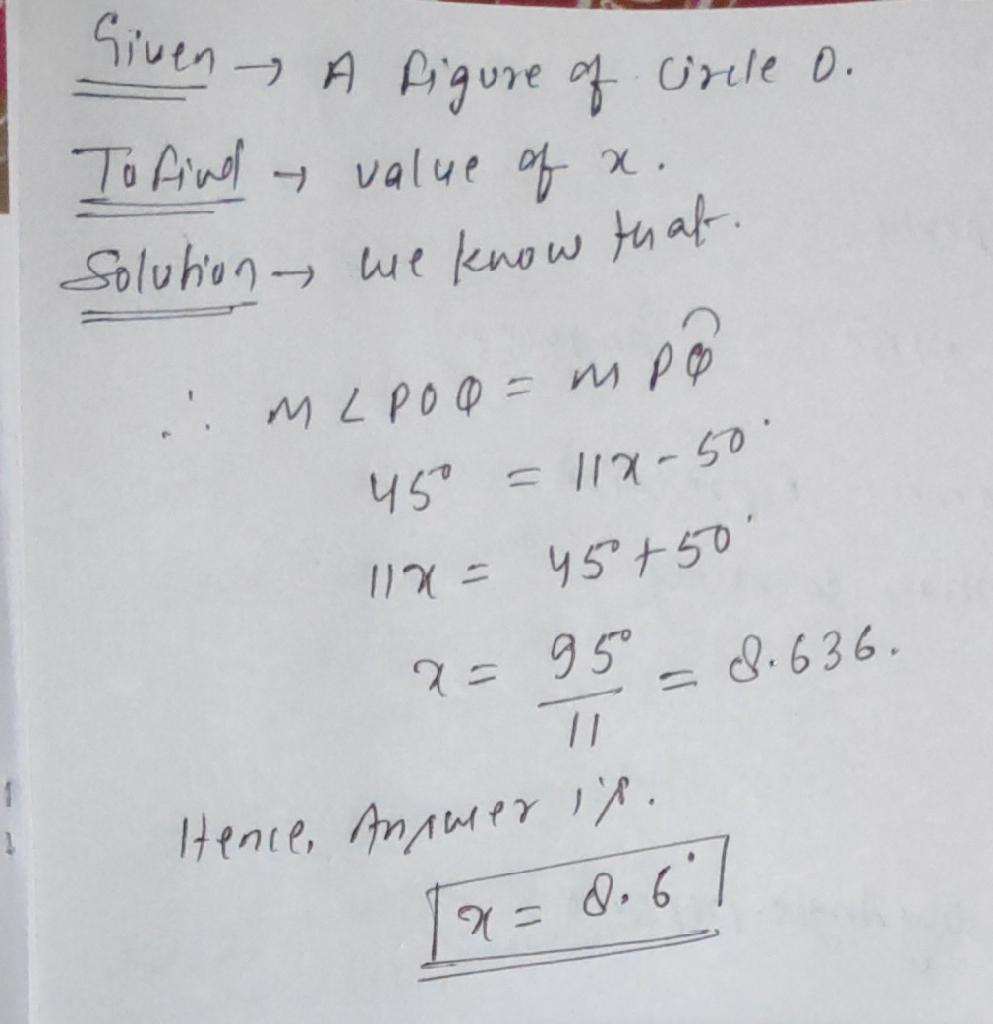 Given → A figure of circle O.
To find → value of x.
Solution → we know that.
∴ m∠POQ = m PQ⌒
45° = 11x - 50°
11x = 45° + 50°
x = 95°/11 = 8.636.
Hence, Answer is.
x = 8.6°